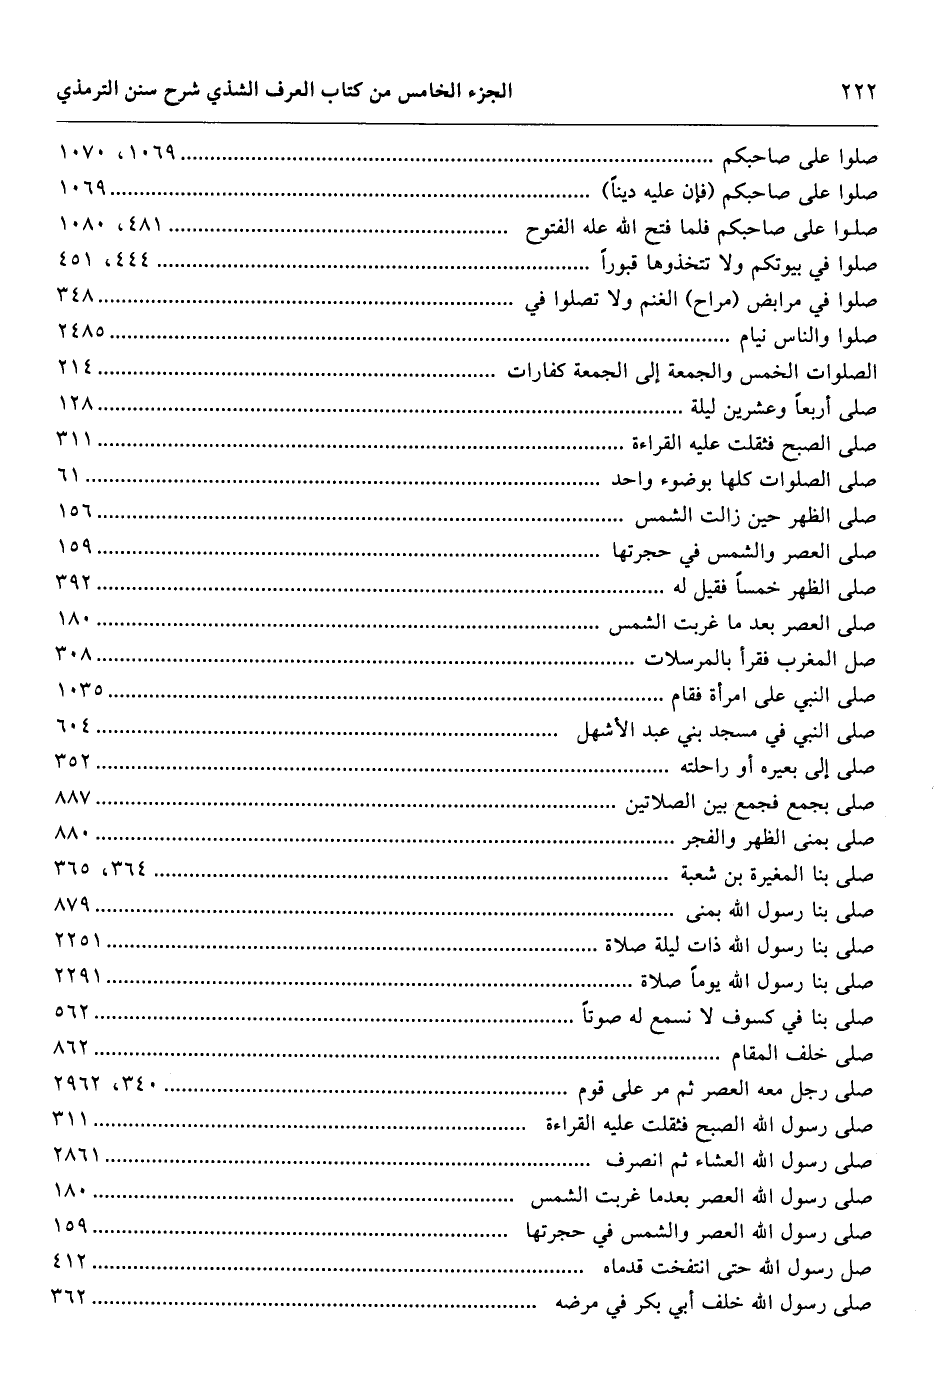 ٢٢٢ الجزء الخامس من كتاب العرف الشذي شرح سنن الترمذي
صلوا على صاحبكم ........ ١٠٦٩، ١٠٧٠
صلوا على صاحبكم (فإن عليه ديناً) ........ ١٠٦٩
صلوا على صاحبكم فلما فتح الله عله الفتوح ........ ٤٨١، ١٠٨٠
صلوا في بيوتكم ولا تتخذوها قبوراً ........ ٤٤٤، ٤٥١
صلوا في مرابض (مراح) الغنم ولا تصلوا في ........ ٣٤٨
صلوا والناس نيام ........ ٢٤٨٥
الصلوات الخمس والجمعة إلى الجمعة كفارات ........ ٢١٤
صلى أربعاً وعشرين ليلة ........ ١٢٨
صلى الصبح فثقلت عليه القراءة ........ ٣١١
صلى الصلوات كلها بوضوء واحد ........ ٦١
صلى الظهر حين زالت الشمس ........ ١٥٦
صلى العصر والشمس في حجرتها ........ ١٥٩
صلى الظهر خمساً فقيل له ........ ٣٩٢
صلى العصر بعد ما غربت الشمس ........ ١٨٠
صل المغرب فقرأ بالمرسلات ........ ٣٠٨
صلى النبي على امرأة فقام ........ ١٠٣٥
صلى النبي في مسجد بني عبد الأشهل ........ ٦٠٤
صلى إلى بعيره أو راحلته ........ ٣٥٢
صلى بجمع فجمع بين الصلاتين ........ ٨٨٧
صلى بمنى الظهر والفجر ........ ٨٨٠
صلى بنا المغيرة بن شعبة ........ ٣٦٤، ٣٦٥
صلى بنا رسول الله بمنى ........ ٨٧٩
صلى بنا رسول الله ذات ليلة صلاة ........ ٢٢٥١
صلى بنا رسول الله يوماً صلاة ........ ٢٢٩١
صلى بنا في كسوف لا نسمع له صوتاً ........ ٥٦٢
صلى خلف المقام ........ ٨٦٢
صلى رجل معه العصر ثم مر على قوم ........ ٣٤٠، ٢٩٦٢
صلى رسول الله الصبح فثقلت عليه القراءة ........ ٣١١
صلى رسول الله العشاء ثم انصرف ........ ٢٨٦١
صلى رسول الله العصر بعدما غربت الشمس ........ ١٨٠
صلى رسول الله العصر والشمس في حجرتها ........ ١٥٩
صل رسول الله حتى انتفخت قدماه ........ ٤١٢
صلى رسول الله خلف أبي بكر في مرضه ........ ٣٦٢